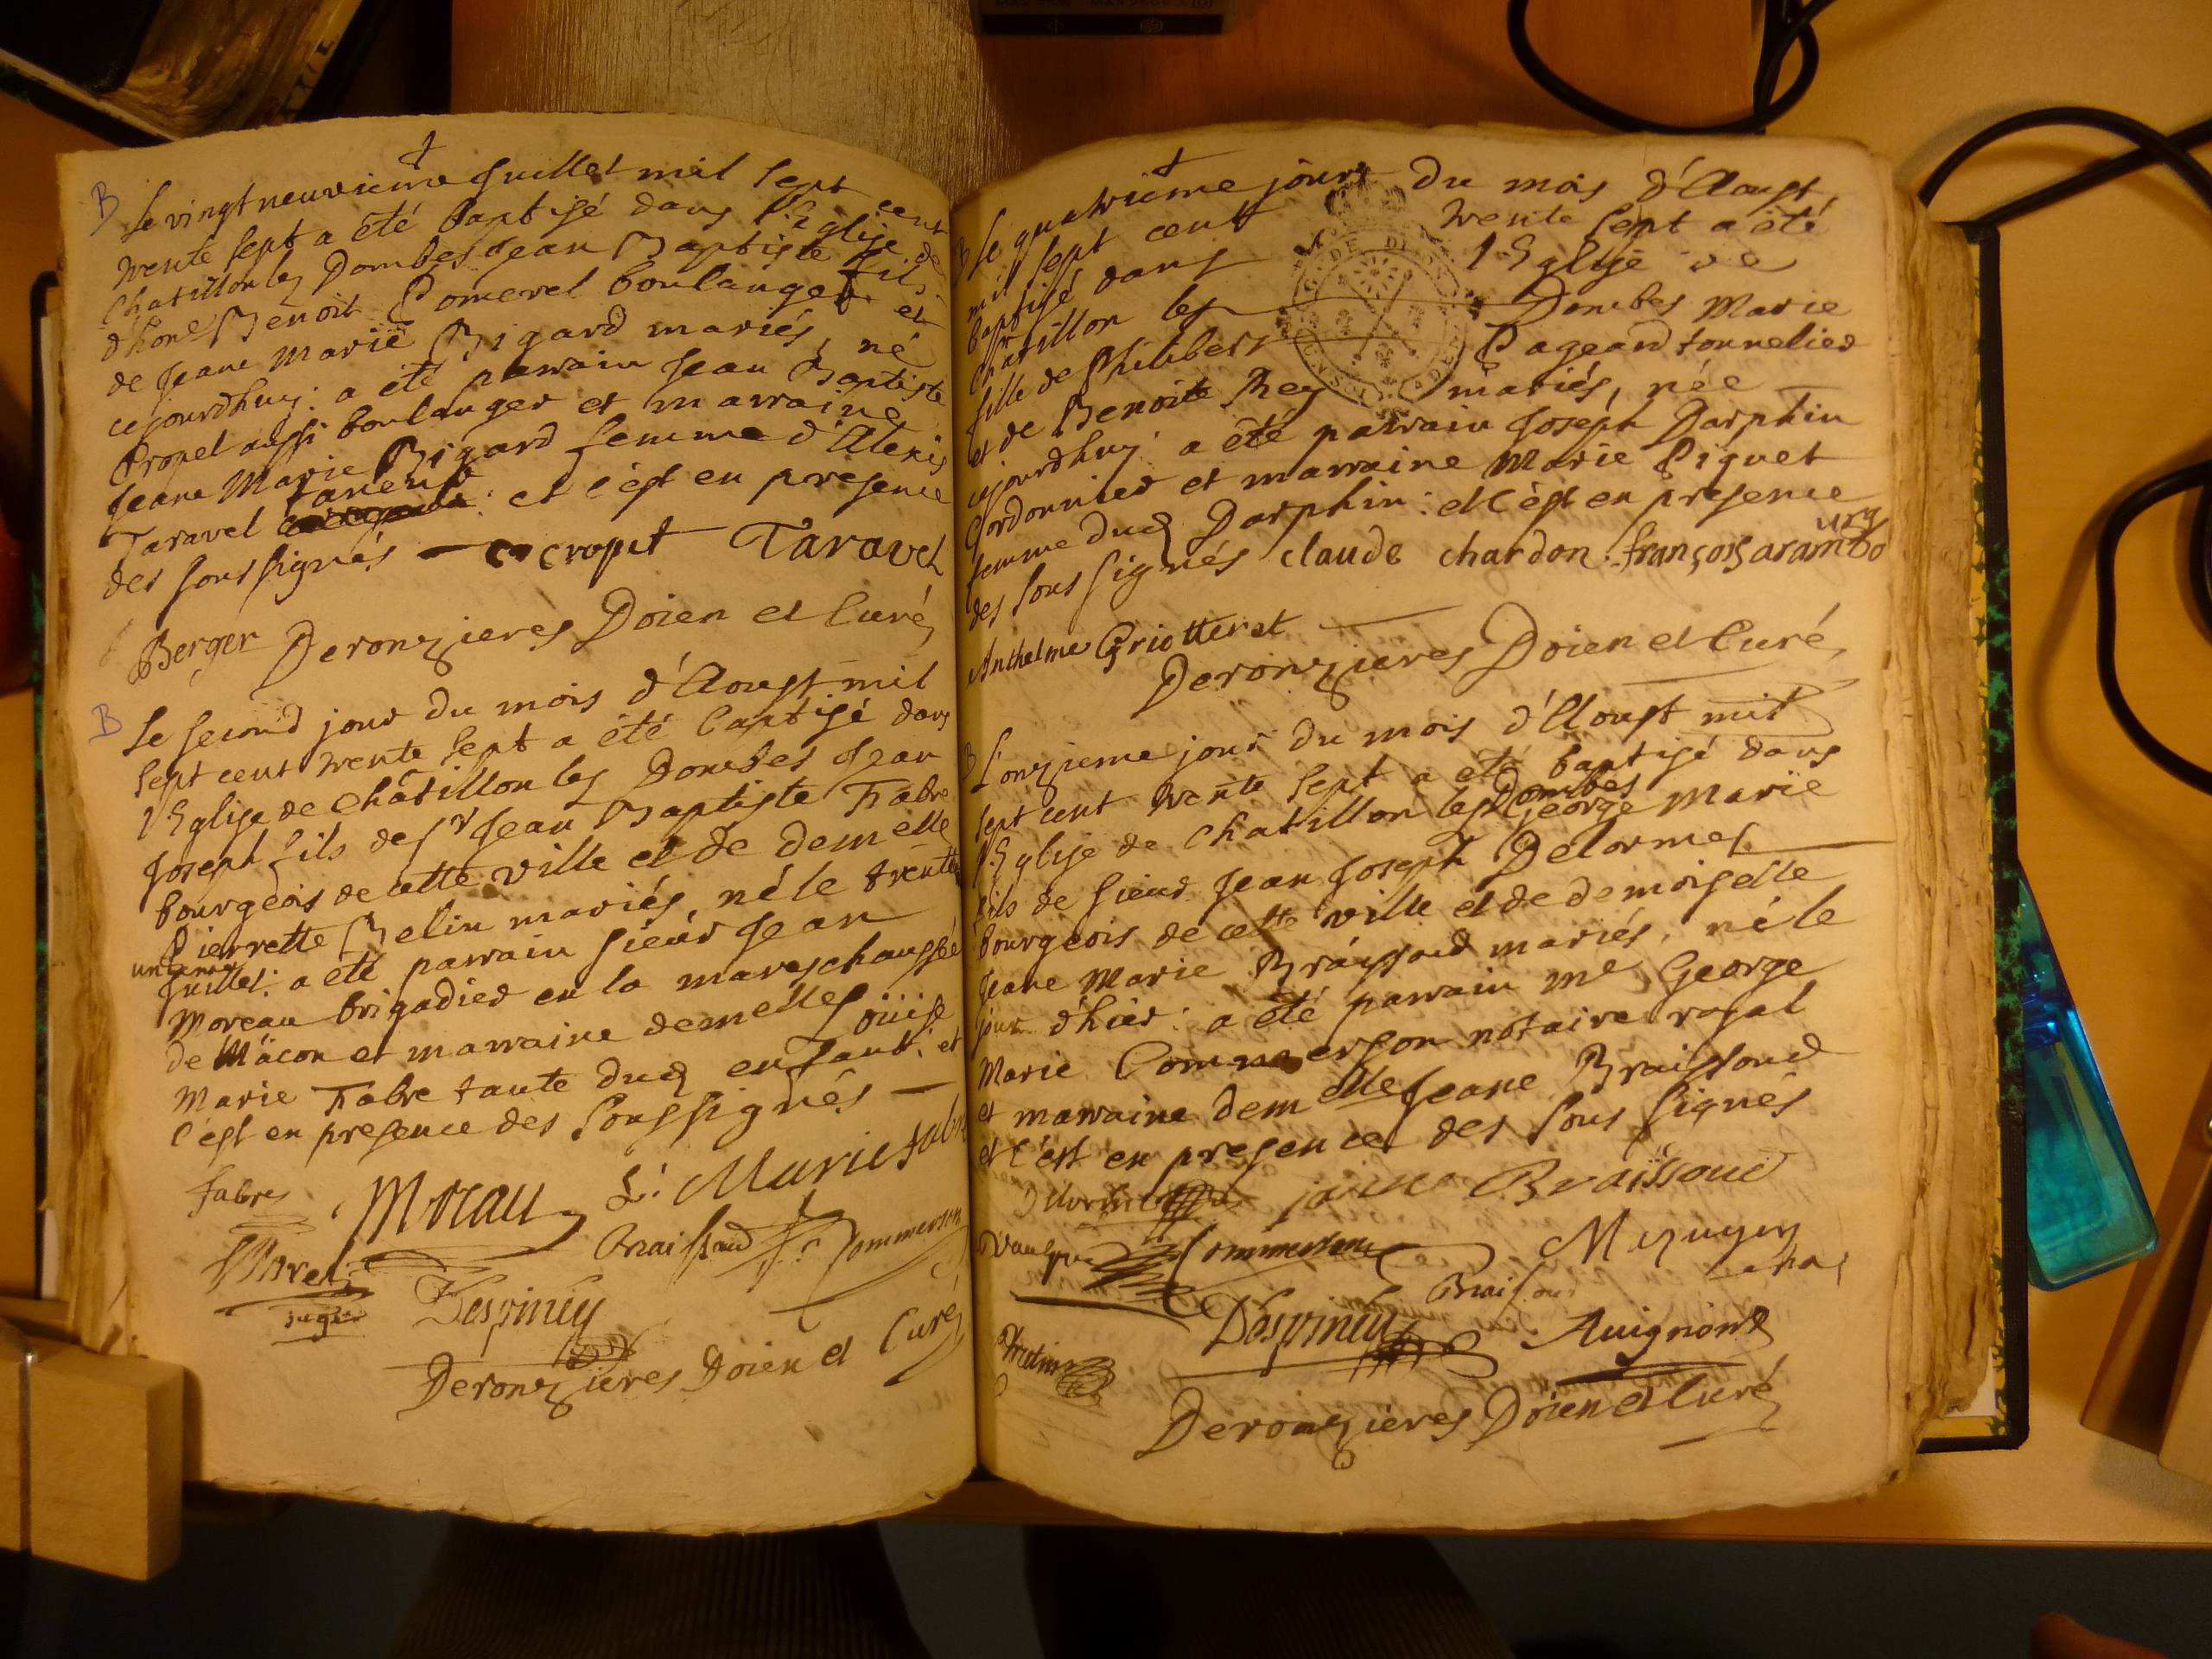 B Le vingt neuvieme Juillet mil sept cent
trente sept a été baptisé dans l'Eglise de
Chatillon les Dombes Jean Baptiste fils
d'hone Benoit Pomerel boulanger et
de Jeane Marie Bigard mariés, né
cejourdhuy: a été parrain Jean Baptiste
Propel aussi boulanger et marraine
Jeane Marie Bigard femme d'Alexis
Taravel taneur: et c'est en presence
des sous signés cropet Taravel
Berger Deronzieres Doien et Curé
B Le second jour du mois d'Aoust mil
sept cent trente sept a été baptisé dans
l'Eglise de châtillon les Dombes Jean
Joseph fils de sr Jean Baptiste Fabre
bourgeois de cette ville et de demelle
Pierrette Belin mariés, né le trente
un
Juillet: a été parrain sieur Jean
Moreau brigadier en la mareschaussée
de Mâcon et marraine demelle Loüise
Marie Fabre tante dud enfant: et
c'est en presence des soussignés
Fabre Moreau L. Marie fabre
Braissoud Commerson
juge Despiney
Deronzieres Doien et Curé
B Le quatrieme jour du mois d'Aoust
mil sept cent trente sept a été
baptisé dans l'Eglise de
Chatillon les Dombes Marie
fille de Philibert Pageard tonnelier
et de Benoite Rey mariés, née
cejourdhuy: a été parrain Joseph Darphin
Cordonnier et marraine Marie Piquet
femme dud Darphin: et c'est en presence
des sous signés claude chardon. françois
Anthelme Griotteret
Deronzieres Doien et Curé
B L'onzieme jour du mois d'Aoust mil
sept cent trente sept a été baptisé dans
Dombes
l'Eglise de Chatillon les George Marie
fils de sieur Jean Joseph Delormes
bourgeois de cette ville et de demoiselle
Jeane Marie Braissoud mariés, né le
jour d'hier: a été parrain me George
Marie Commerson notaire royal
et marraine demelle Jeane Braissoud
et c'est en presence des sous signés
Braïssoud
Commerson
Despiney
Deronzieres Doien et Curé